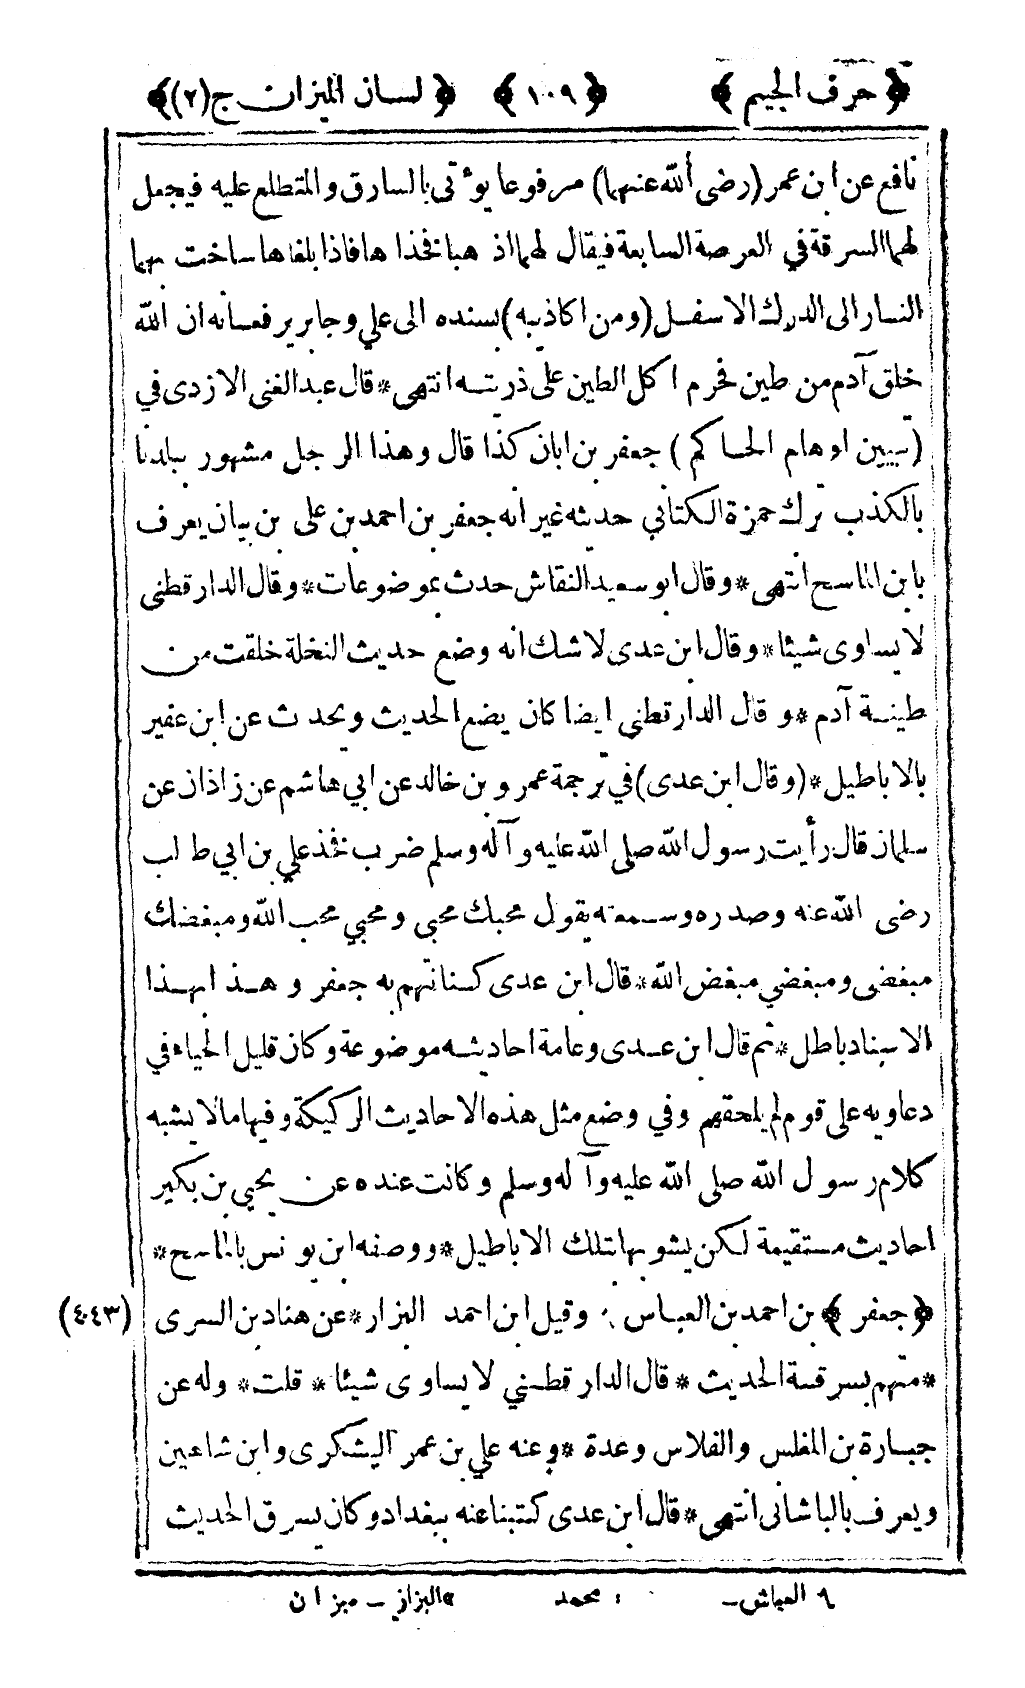 ﴿حرف الجيم﴾ ﴿١٠٩﴾ ﴿لسان الميزان ج(٢)﴾
نافع عن ابن عمر (رضى الله عنهما) مرفوعا يؤتى بالسارق والمتطلع عليه فيجعل
لهما السرقة في العرصة السابعة فيقال لهما اذهبا فخذاها فاذا بلغاها ساخت بهما
النار الى الدرك الاسفل (ومن اكاذيبه) بسنده الى علي وجابر يرفعانه ان الله
خلق آدم من طين فحرم اكل الطين على ذريته انتهى * قال عبد الغنى الازدى في
(تبيين اوهام الحاكم) جعفر بن ابان كذا قال وهذا الرجل مشهور ببلدنا
بالكذب ترك حمزة الكتاني حديثه غير انه جعفر بن احمد بن على بن بيان يعرف
بابن الماسح انتهى * وقال ابو سعيد النقاش حدث بموضوعات * وقال الدار قطنى
لا يساوى شيئا * وقال ابن عدى لا شك انه وضع حديث النخلة خلقت من
طينة آدم * و قال الدار قطنى ايضا كان يضع الحديث ويحدث عن ابن عفير
بالاباطيل * (وقال ابن عدى) في ترجمة عمرو بن خالد عن ابي هاشم عن زاذان عن
سلمان قال رأيت رسول الله صلى الله عليه وآله وسلم ضرب فخذ علي بن ابي طالب
رضى الله عنه وصدره وسمعته يقول محبك محبي ومحبي محب الله ومبغضك
مبغضى ومبغضي مبغض الله * قال ابن عدى كنا نتهم به جعفر وهذا بهذا
الاسناد باطل * ثم قال ابن عدى وعامة احاديثه موضوعة وكان قليل الحياء في
دعاويه على قوم لم يلحقهم وفي وضع مثل هذه الاحاديث الركيكة وفيها ما لا يشبه
كلام رسول الله صلى الله عليه وآله وسلم وكانت عنده عن يحيى بن بكير
احاديث مستقيمة لكن يشوبها بتلك الاباطيل * ووصفه ابن يونس بالماسح *
﴿جعفر﴾ بن احمد بن العباس وقيل ابن احمد البزار * عن هناد بن السرى (٤٤٣)
* متهم بسرقة الحديث * قال الدار قطني لا يساوى شيئا * قلت * وله عن
جبارة بن المغلس والفلاس وعدة * وعنه علي بن عمر اليشكرى وابن شاهين
ويعرف بالباشانى انتهى * قال ابن عدى كتبنا عنه ببغداد وكان يسرق الحديث
٩ العياش – : محمد البزاز – ميزان